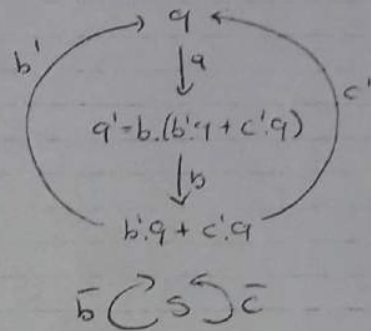 q
b'
a
c'
q'=b.(b'.q + c'.q)
b
b'.q + c'.q
b̄ S c̄